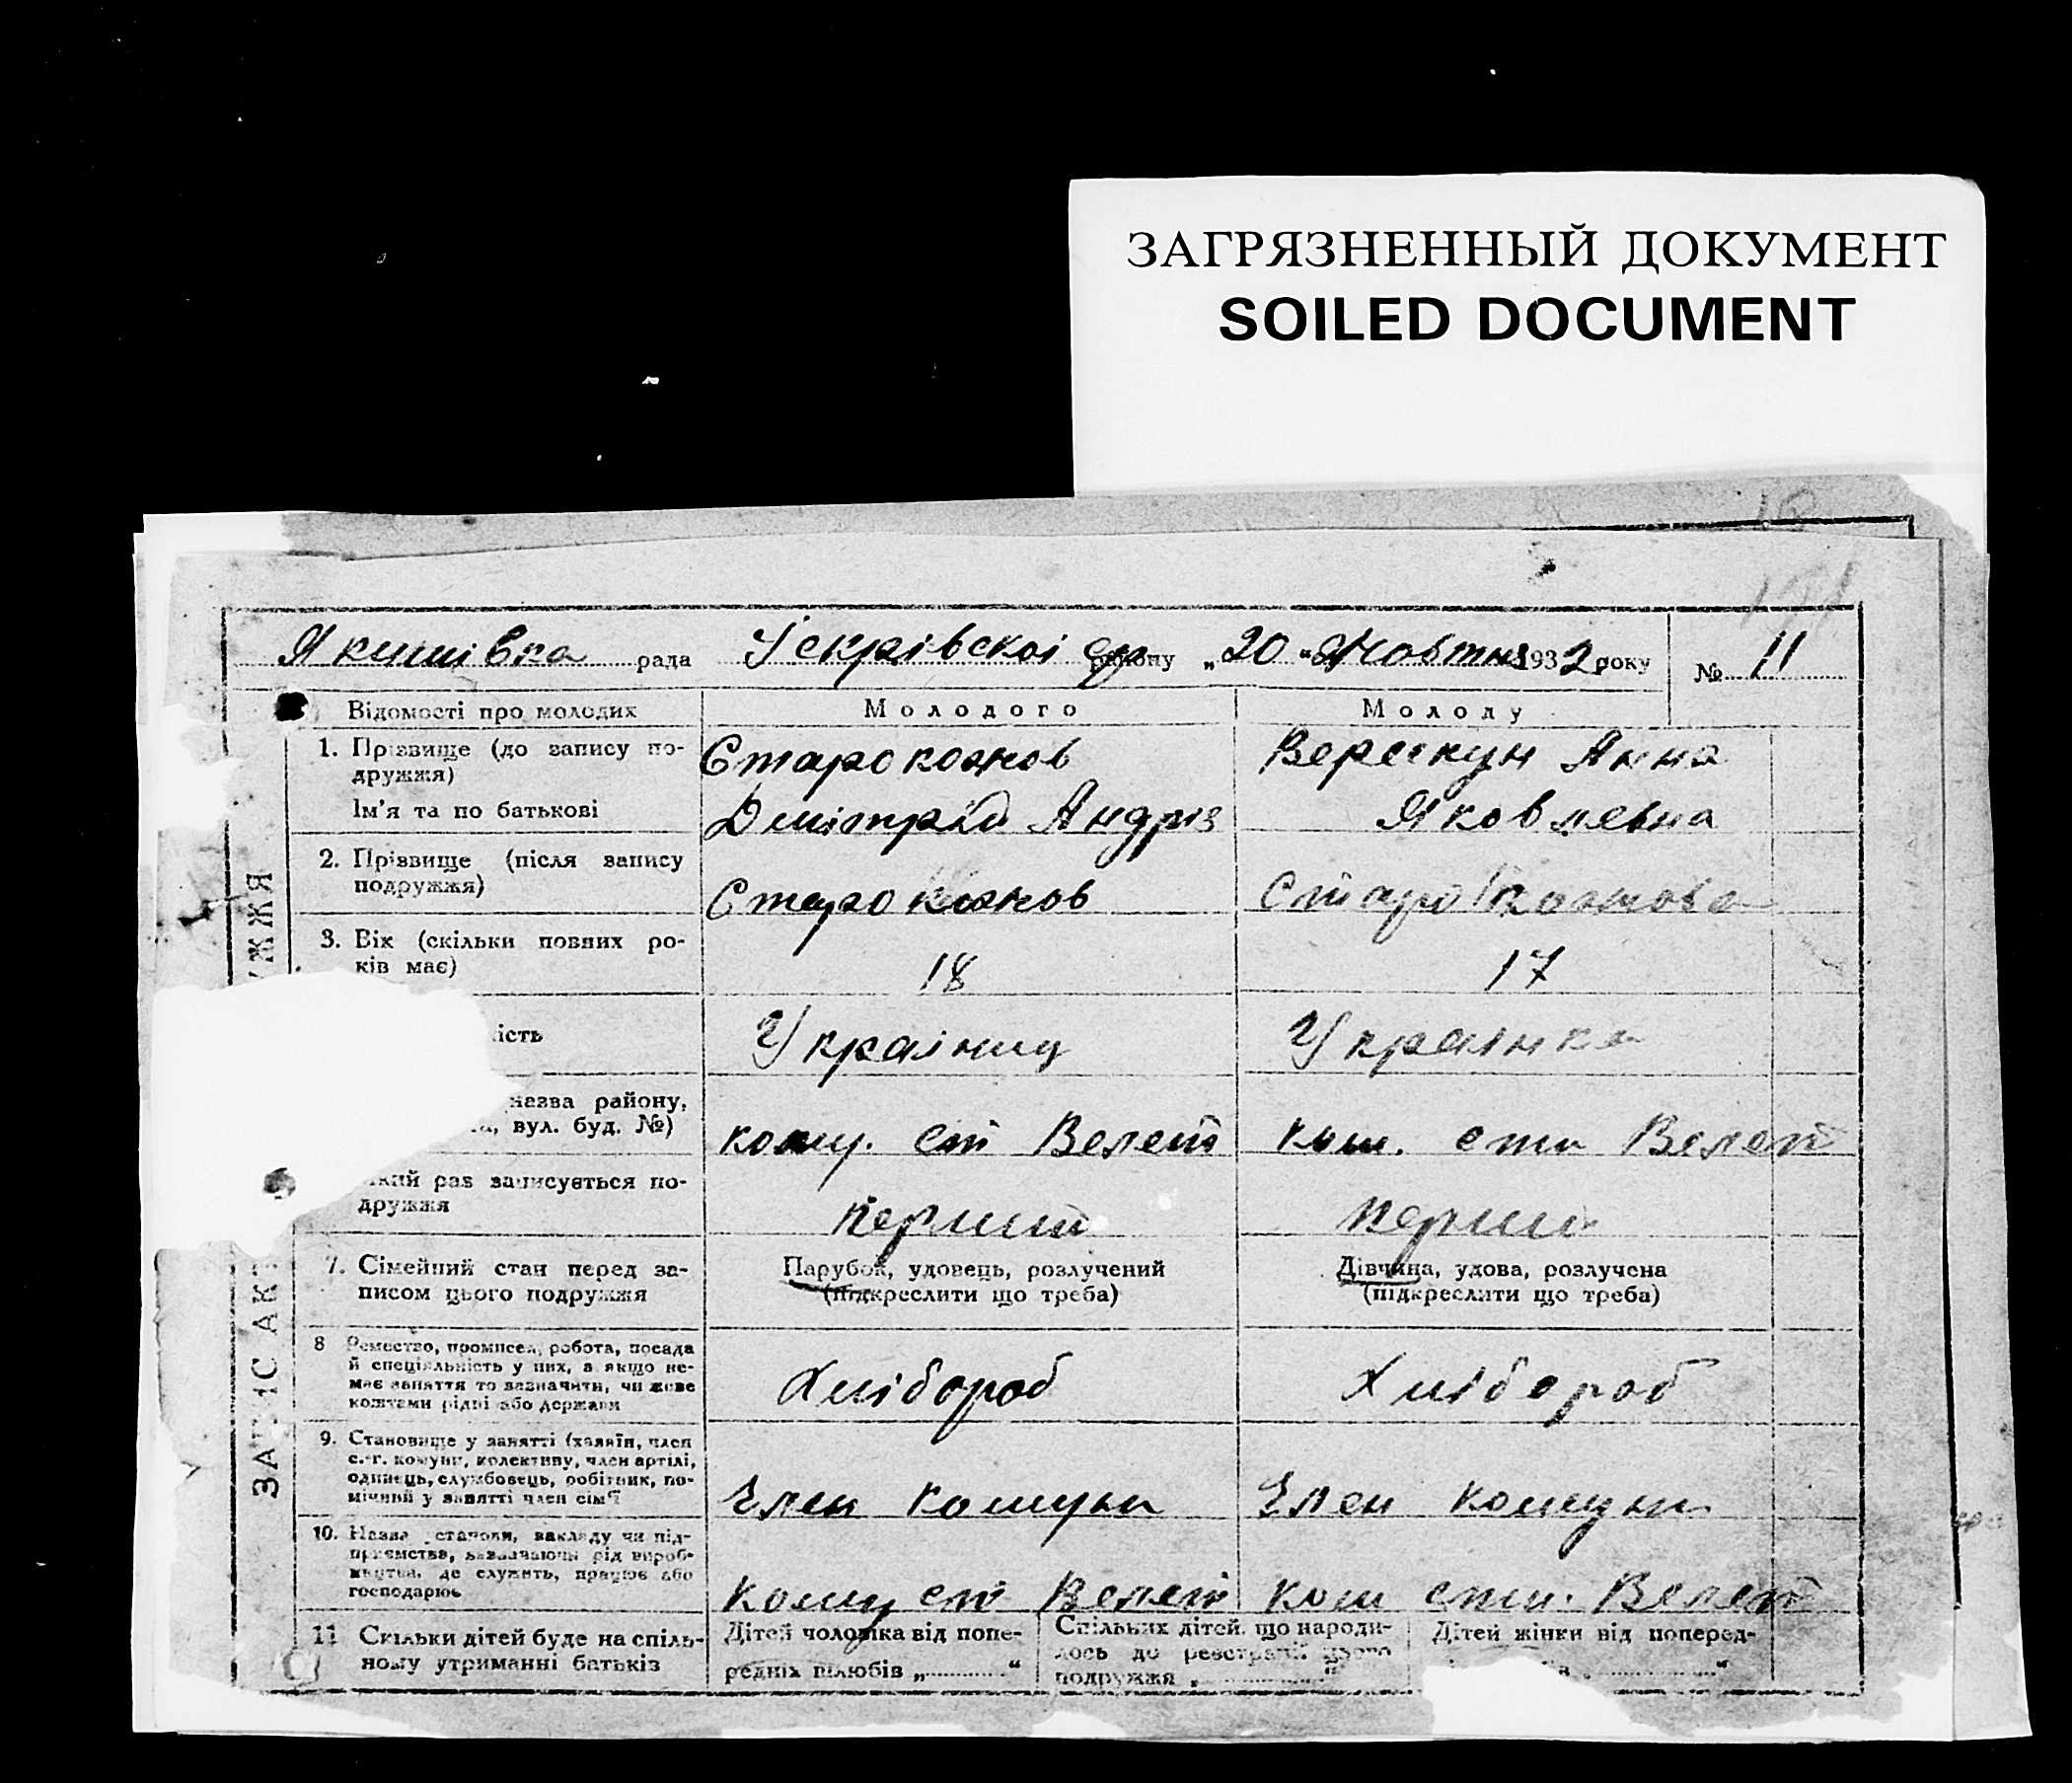 ЗАГРЯЗНЕННЫЙ ДОКУМЕНТ
SOILED DOCUMENT
Якишівка рада Іскрівскоі району „20 " Жовтня 1932 року № 11
Відомості про молодих Молодого Молоду
1. Прізвище (до запису по-
дружжя)
Старокожов Верескун Анна
Ім'я та по батькові
Дмітрій Андрів Яковлевна
2. Прізвище (після запису
подружжя)
Старокожов Старокожова
3. Вік (скільки повних ро-
ків має)
18 17
ість
Украіниц Украінка
назва району,
вул. буд. №)
кому. ст Велет ком. сти Велет
який раз записується по-
дружжя
перший перши
7. Сімейний стан перед за-
писом цього подружжя
Парубок, удовець, розлучений
(підкреслити що треба)
Дівчина, удова, розлучена
(підкреслити що треба)
8 Ремество, промисел, робота, посада
й спеціяльність у них, а якщо не-
має заняття то зазначити, чи живе
коштами рідні або держави
Хлібороб Хлібороб
9. Становище у занятті (хазяїн, член
с.-г. комуни, колективу, член артілі,
одинець, службовець, робітник, по-
мічний у занятті член сім'ї
Член комуни Член комуни
10. Назва установи, закладу чи під-
приємства, зазначаючи рід вироб-
ництва, де служить, працює або
господарює
Кому ст Велет Ком сти. Велет
11 Скільки дітей буде на спіль-
ному утриманні батьків
Дітей чоловіка від попе-
редніх шлюбів „ "
Спільних дітей, що народи-
лось до реєстрації цього
подружжя „ "
Дітей жінки від поперед-
ЗАПИС АК
УЖЖЯ